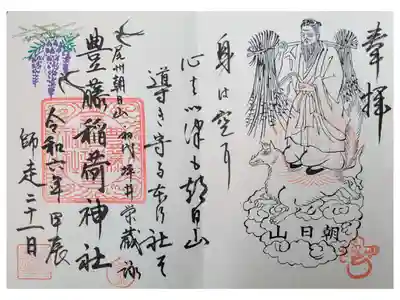 奉拝
朝日山
身は
心
も朝日山
導き守る
社
尾州朝日山
初代 坪井栄蔵 詠
豊藤稲荷神社
令和六年 甲辰
師走二十一日